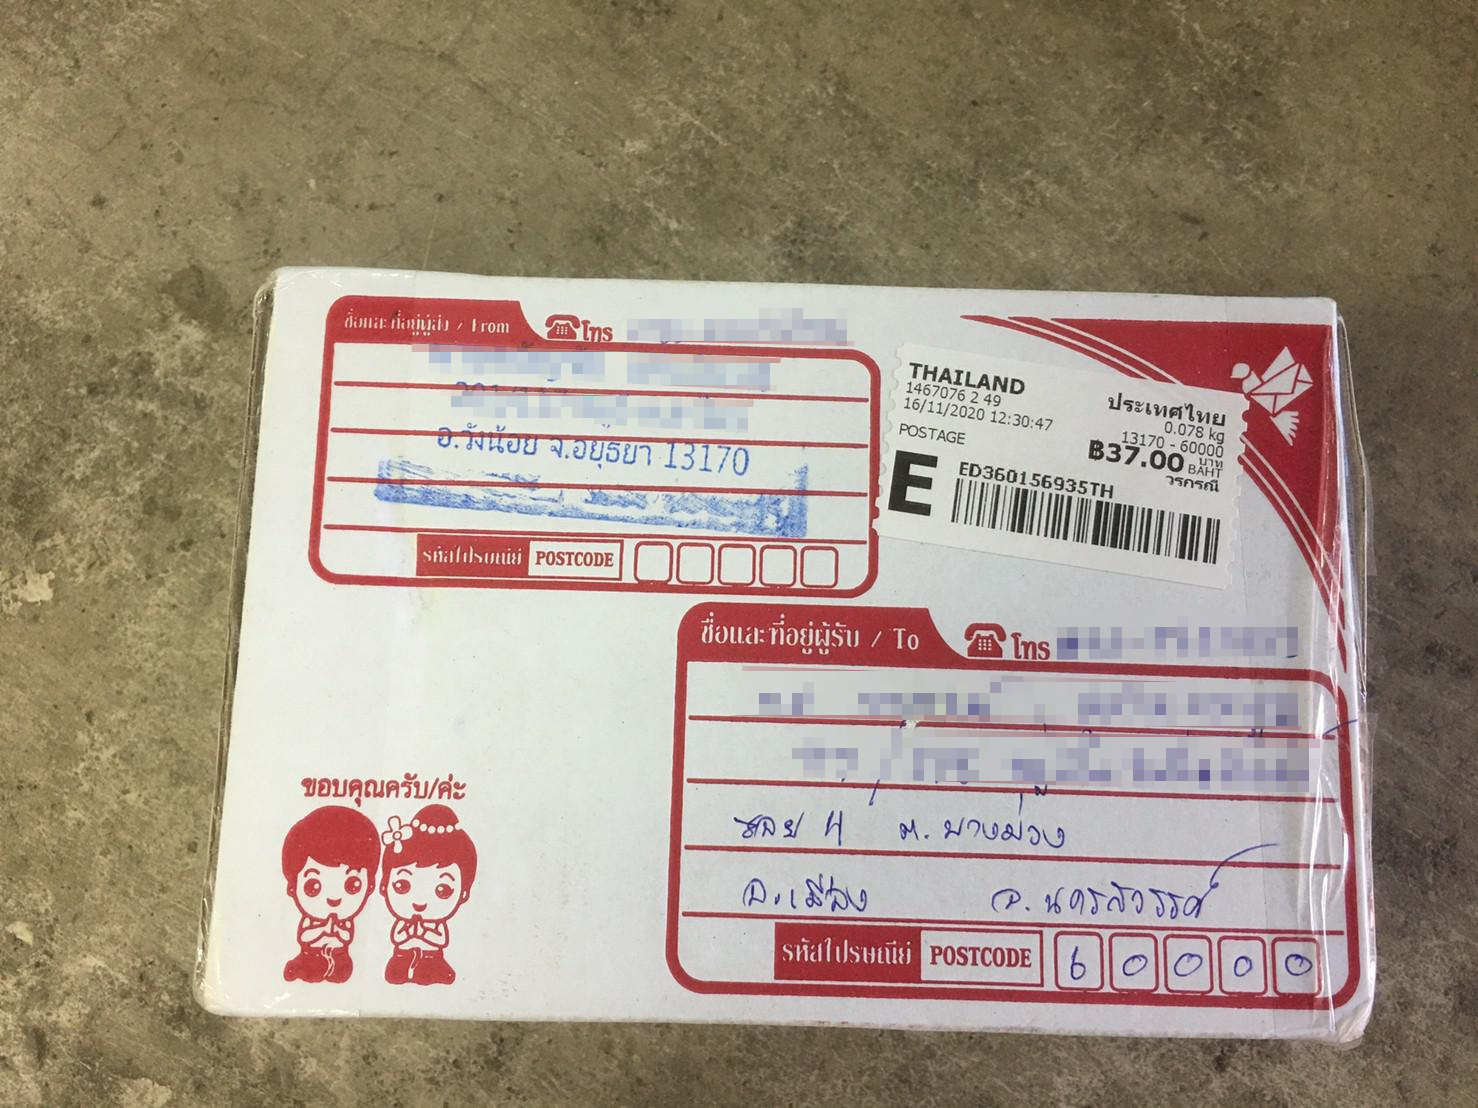 ชื่อและที่อยู่ผู้ส่ง / From
โทร
อ.วังน้อย จ.อยุธยา 13170
รหัสไปรษณีย์ POSTCODE
THAILAND
1467076 2 49
16/11/2020 12:30:47
POSTAGE
ประเทศไทย
0.078 kg
13170 - 60000
฿37.00 บาท BAHT
วรกรณี
E ED360156935TH
ชื่อและที่อยู่ผู้รับ / To
โทร
ซอย 4 ต. บางม่วง
อ.เมือง จ. นครสวรรค์
รหัสไปรษณีย์ POSTCODE 6 0 0 0 0
ขอบคุณครับ/ค่ะ